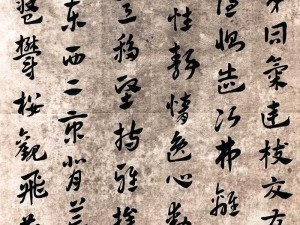 弟同氣連枝交友
隱惻造次弗離
性靜情逸心動
意移堅持雅操
東西二京背芒
盤鬱樓觀飛驚